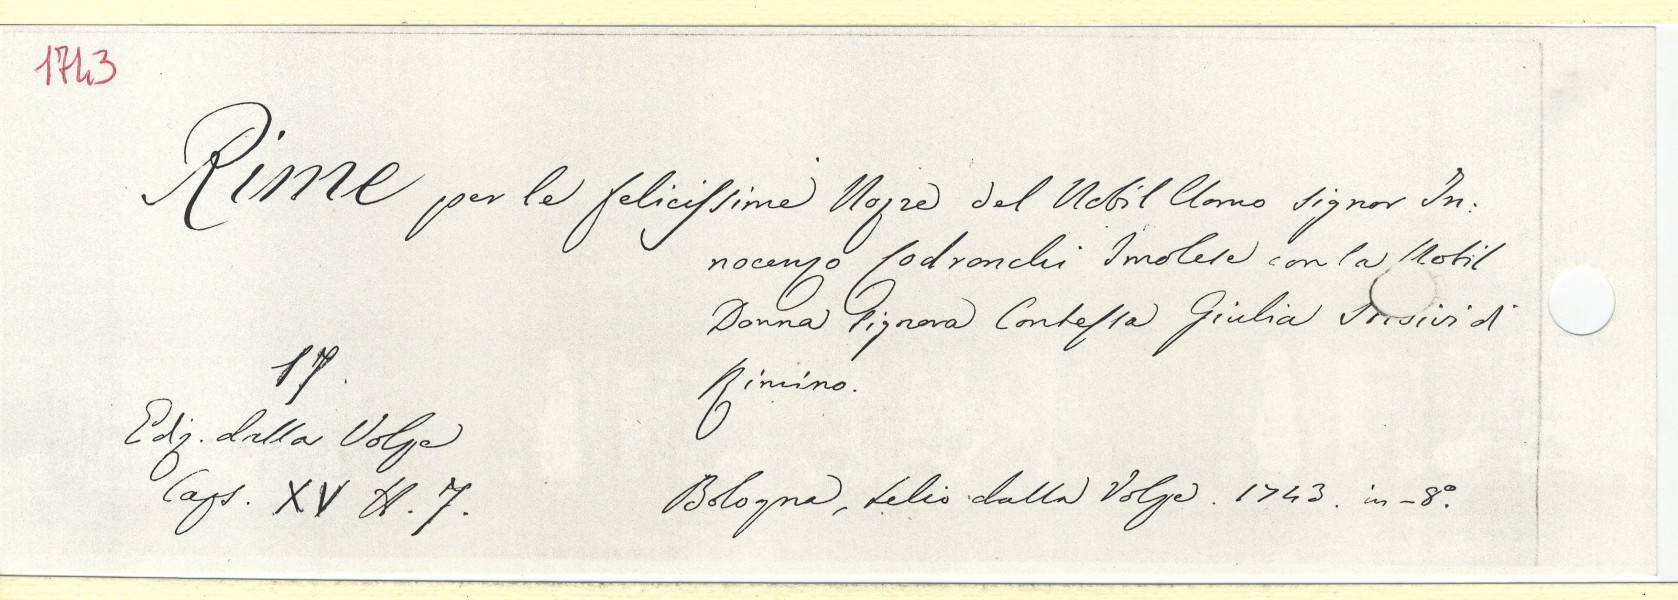 1743
Rime per le felicissime Nozze del Nobil Uomo Signor In:
nocenzo Codronchi Imolese con la Nobil
Donna Signora Contessa Giulia di
Rimino.
17.
Ediz. dalla Volpe
Caps. XV N. 7.
Bologna, Lelio dalla Volpe. 1743. in-8º.